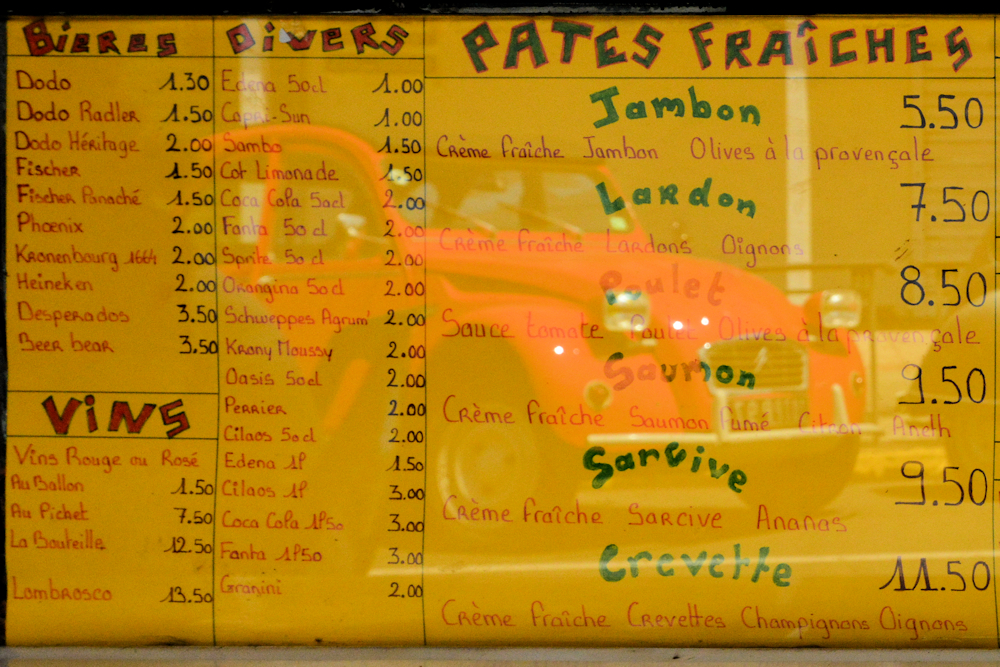 BIERES
Dodo 1.30
Dodo Radler 1.50
Dodo Héritage 2.00
Fischer 1.50
Fischer Panaché 1.50
Phoenix 2.00
Kronenbourg 1664 2.00
Heineken 2.00
Desperados 3.50
Beer bear 3.50
VINS
Vins Rouge ou Rosé
Au Ballon 1.50
Au Pichet 7.50
La Bouteille 12.50
Lambrosco 13.50
DIVERS
Edena 50cl 1.00
Capri-Sun 1.00
Sambo 1.50
Cot Limonade 1.50
Coca Cola 50cl 2.00
Fanta 50 cl 2.00
Sprite 50 cl 2.00
Orangina 50cl 2.00
Schweppes Agrum' 2.00
Krony Moussy 2.00
Oasis 50cl 2.00
Perrier 2.00
Cilaos 50cl 2.00
Edena 1l 1.50
Cilaos 1l 3.00
Coca Cola 1l50 3.00
Fanta 1l50 3.00
Granini 2.00
PATES FRAÎCHES
Jambon 5.50
Crème fraîche Jambon Olives à la provençale
Lardon 7.50
Crème fraîche Lardons Oignons
Poulet 8.50
Sauce tomate Poulet Olives à la provençale
Saumon 9.50
Crème fraîche Saumon fumé Citron Aneth
Sarcive 9.50
Crème fraîche Sarcive Ananas
Crevette 11.50
Crème fraîche Crevettes Champignons Oignons